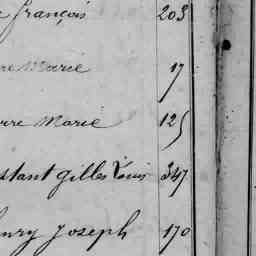 françois 203
Marie 17
Marie 125
stant gilles Louis 347
Joseph 170